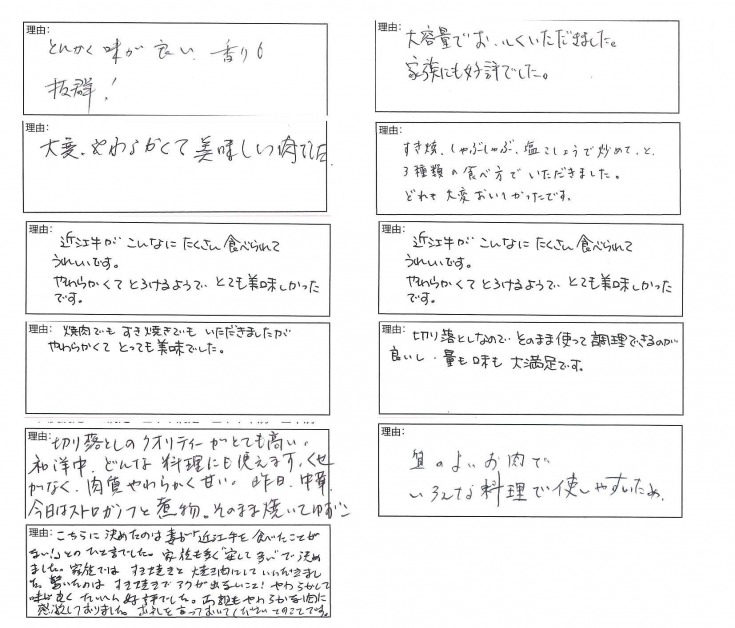 理由:
とにかく味が良い、香りも
抜群!
理由:
大変、やわらかくて美味しい肉でした
理由:
近江牛がこんなにたくさん食べられて
うれしいです。
やわらかくてとろけるようで、とても美味しかった
です。
理由: 焼肉でもすき焼きでもいただきましたが
やわらかくてとっても美味でした。
理由: 切り落としのクオリティーがとても高い。
和洋中、どんな料理にも使えます。くせ
がなく、肉質やわらかく甘い。昨日、中華、
今日はストロガノフと煮物。そのまま焼いてゆずこ
理由: こちらに決めたのは妻が「近江牛を食べたことが
ない!」とのひと言でした。家族も多く"安して多い"で決め
ました。家族では すき焼きと焼き肉にしていただきまし
た。驚いたのは すき焼きでアクが出ないこと! やわらかくて
味が良く たいへん好評でした。両親もやわらかな肉に
感激しておりました。お礼を言っておいてくださいとのことです。
理由:
大容量でおいしくいただきました。
家族にも好評でした。
理由:
すき焼、しゃぶしゃぶ、塩こしょうで炒めて、と、
3種類の食べ方でいただきました。
どれも大変おいしかったです。
理由:
近江牛がこんなにたくさん食べられて
うれしいです。
やわらかくてとろけるようで、とても美味しかった
です。
理由: 切り落としなので、そのまま使って調理できるのが
良いし、量も味も大満足です。
理由:
質のよいお肉で
いろんな料理で使いやすいため。